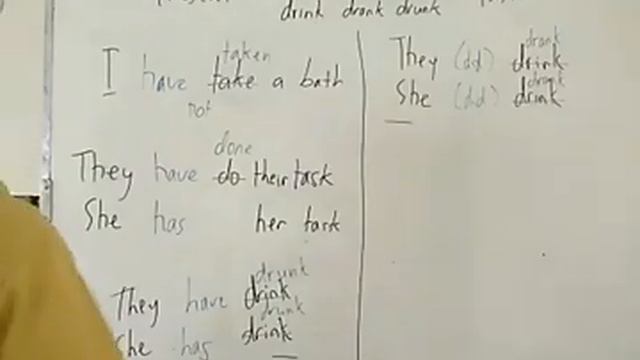 drink drank drunk
taken
I have take a bath
not
done
They have do their task
She has her task
drunk
They have drink
drunk
She has drink
drank
They (dd) drink
drank
She (dd) drink